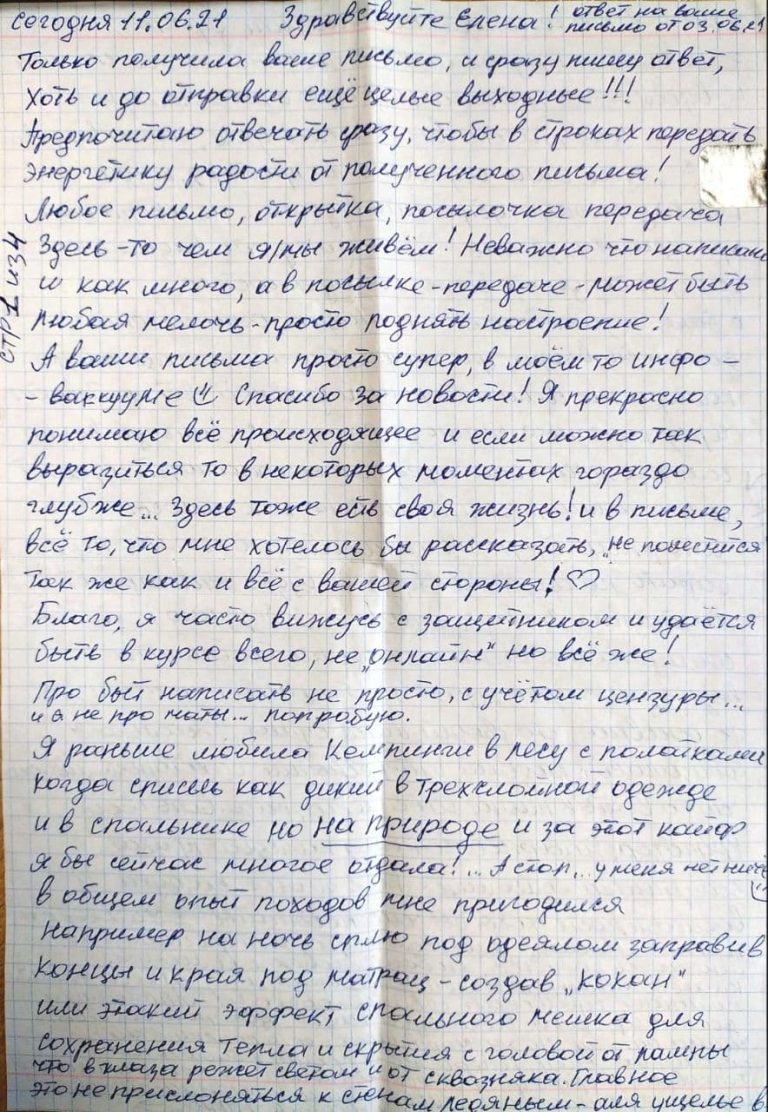 сегодня 11.06.21 Здравствуйте Елена! ответ на ваше
письмо от 03.06.21
Только получила ваше письмо, и сразу пишу ответ,
Хоть и до отправки ещё целые выходные!!!
Предпочитаю отвечать сразу, чтобы в строках передать
энергетику радости от полученного письма!
Любое письмо, открытка, посылочка передача
Здесь-то чем я/мы живём! Неважно что написано
и как много, а в посылке-передаче-может быть
любая мелочь-просто поднять настроение!
стр 1 из 4
А ваши письма просто супер, в моём то инфо-
-вакууме Спасибо за новости! Я прекрасно
понимаю всё происходящее и если можно так
выразиться то в некоторых моментах гораздо
глубже... Здесь тоже есть своя жизнь! и в письме,
всё то, что мне хотелось бы рассказать, не поместится
так же как и всё с вашей стороны! ♡
Благо, я часто вижусь с защитником и удаётся
быть в курсе всего, не „онлайн" но всё же!
Про быт написать не просто, с учётом цензуры...
и я не про маты... попробую.
Я раньше любила Кемпинги в лесу с палатками
когда спишь как дикий в трехслойной одежде
и в спальнике но на природе и за этот кайф
я бы сейчас многое отдала!... А стоп... у меня нет ниче
в общем опыт походов мне пригодился
например на ночь сплю под одеялом заправив
концы и края под матрац-создав „кокан"
или этакий эффект спального мешка для
сохранения тепла и скрытия с головой от лампы
что в глаза режет светом и от сквозняка. Главное
это не прислоняться к стенам ледяным-аля ущелье в